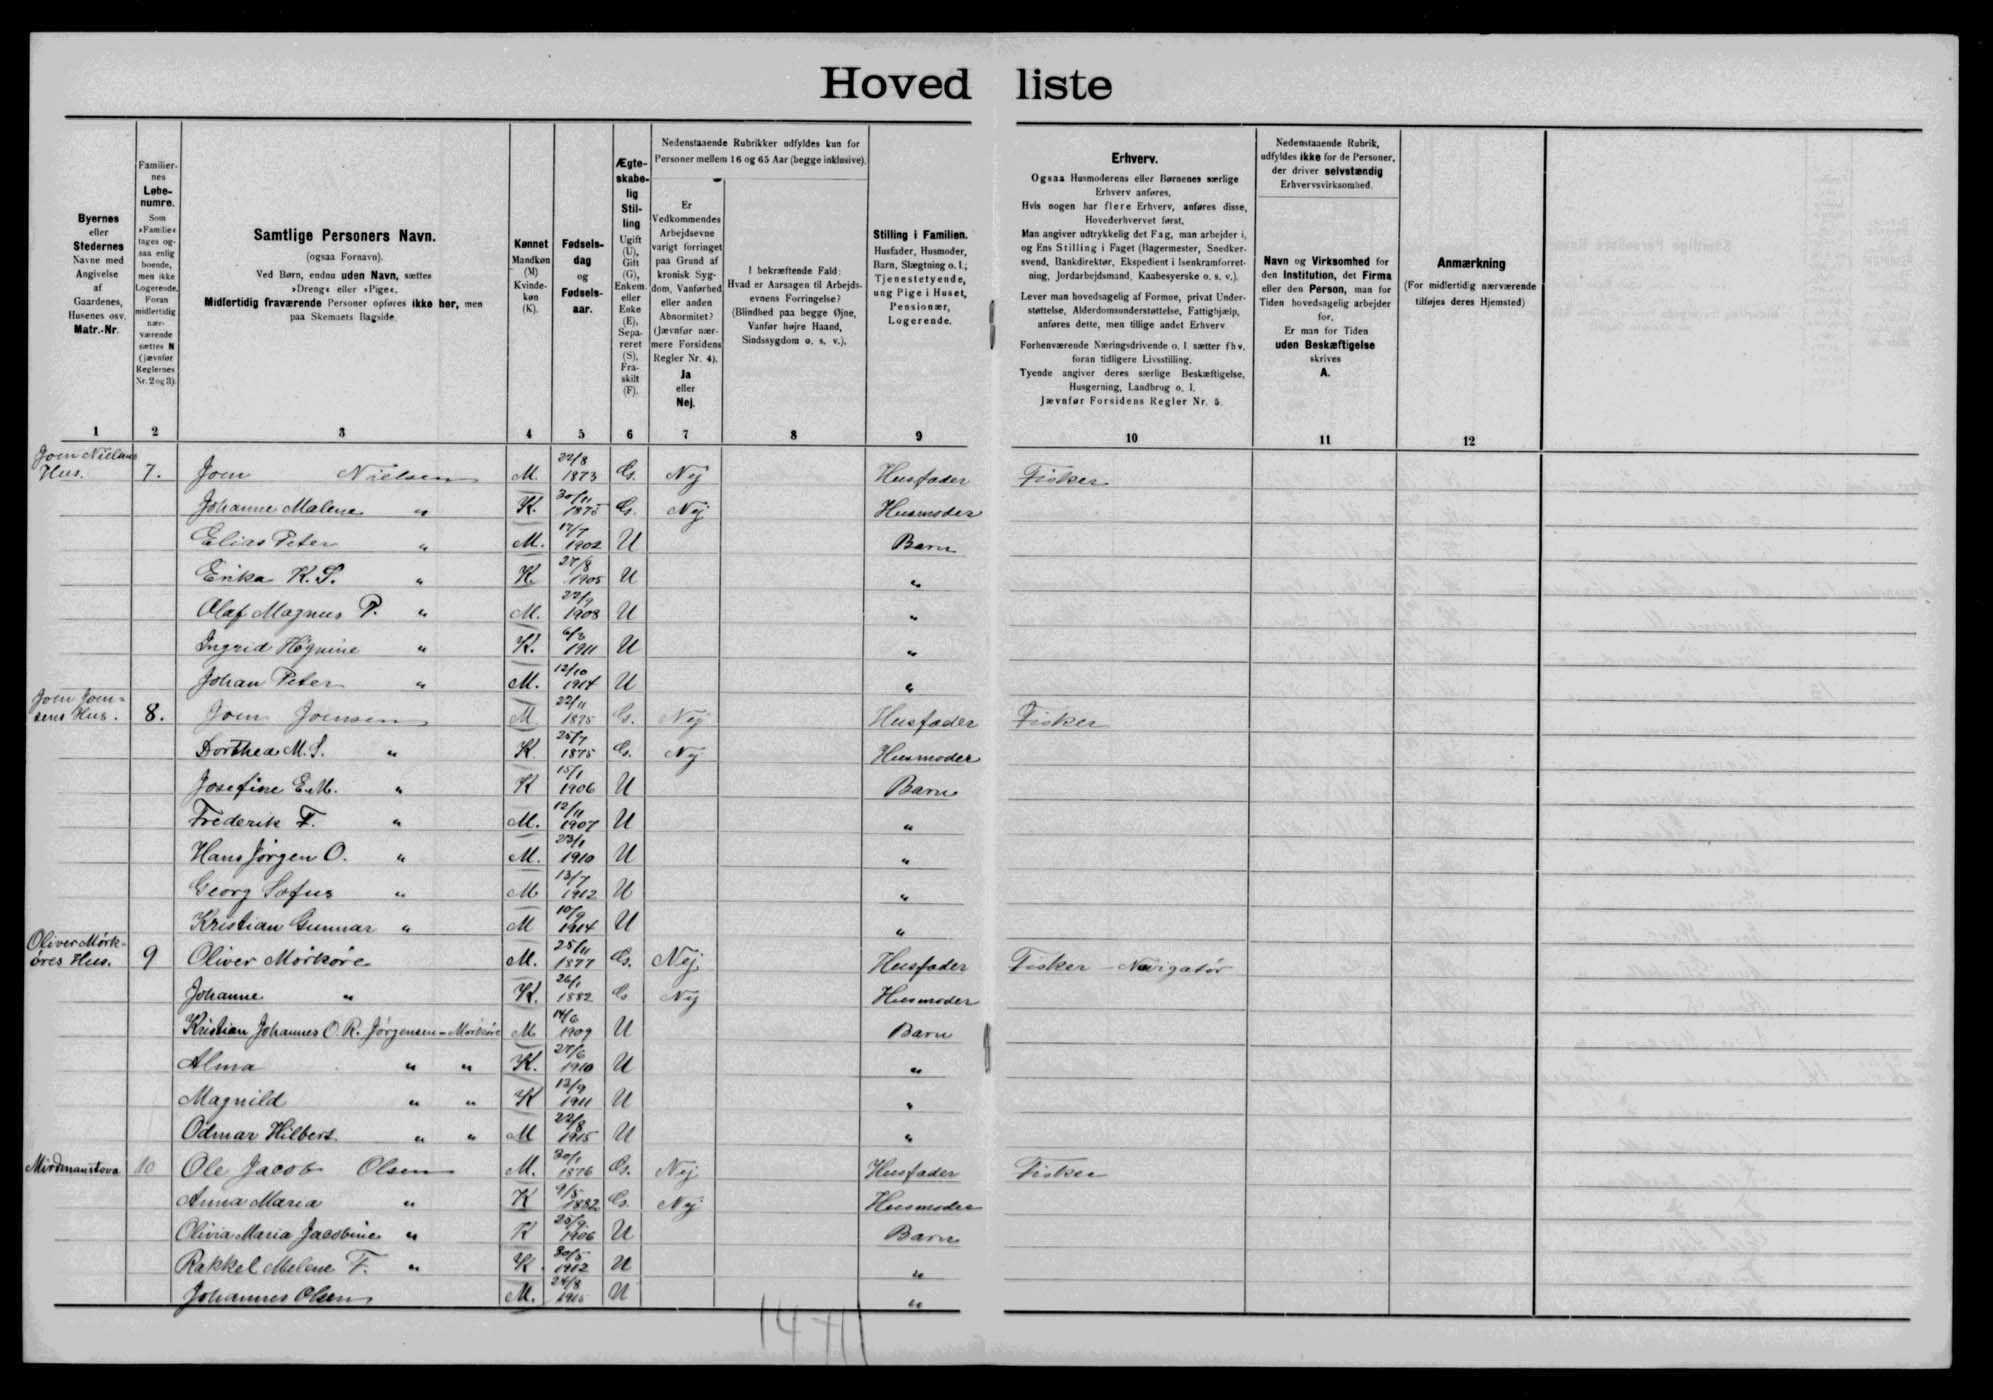 Hovedliste
Byernes
eller
Stedernes
Navne med
Angivelse
af
Gaardenes,
Husenes osv.
Matr.-Nr.
Familier-
nes
Løbe-
numre.
Som
»Familie«
tages og-
saa enlig
boende,
men ikke
Logerende.
Foran
midlertidig
nær-
værende
sættes N
(jævnfør
Reglernes
Nr. 2 og 3).
Samtlige Personers Navn.
(ogsaa Fornavn).
Ved Børn, endnu uden Navn, sættes
»Dreng« eller »Pige«.
Midlertidig fraværende Personer opføres ikke her, men
paa Skemaets Bagside.
Kønnet
Mandkøn
(M)
Kvinde-
køn
(K).
Fødsels-
dag
og
Fødsels-
aar.
Ægte-
skabe-
lig
Stil-
ling
Ugift
(U),
Gift
(G),
Enkem.
eller
Enke
(E),
Sepa-
reret
(S),
Fra-
skilt
(F).
Nedenstaaende Rubrikker udfyldes kun for
Personer mellem 16 og 65 Aar (begge inklusive).
Er
Vedkommendes
Arbejdsevne
varigt forringet
paa Grund af
kronisk Syg-
dom, Vanførhed
eller anden
Abnormitet?
(Jævnfør nær-
mere Forsidens
Regler Nr. 4).
Ja
eller
Nej.
I bekræftende Fald:
Hvad er Aarsagen til Arbejds-
evnens Forringelse?
(Blindhed paa begge Øjne,
Vanfør højre Haand,
Sindssygdom o. s. v.).
Stilling i Familien.
Husfader, Husmoder,
Barn, Slægtning o. l.;
Tjenestetyende,
ung Pige i Huset,
Pensionær,
Logerende.
Erhverv.
Ogsaa Husmoderens eller Børnenes særlige
Erhverv anføres.
Hvis nogen har flere Erhverv, anføres disse,
Hovederhvervet først.
Man angiver udtrykkelig det Fag, man arbejder i,
og Ens Stilling i Faget (Bagermester, Snedker-
svend, Bankdirektør, Ekspedient i Isenkramforret-
ning, Jordarbejdsmand, Kaabesyerske o. s. v.).
Lever man hovedsagelig af Formue, privat Under-
støttelse, Alderdomsunderstøttelse, Fattighjælp,
anføres dette, men tillige andet Erhverv
Forhenværende Næringsdrivende o. l. sætter fhv.
foran tidligere Livsstilling.
Tyende angiver deres særlige Beskæftigelse,
Husgerning, Landbrug o. l.
Jævnfør Forsidens Regler Nr. 5.
Nedenstaaende Rubrik,
udfyldes ikke for de Personer,
der driver selvstændig
Erhvervsvirksomhed.
Navn og Virksomhed for
den Institution, det Firma
eller den Person, man for
Tiden hovedsagelig arbejder
for,
Er man for Tiden
uden Beskæftigelse
skrives
A.
Anmærkning
(For midlertidig nærværende
tilføjes deres Hjemsted)
1 2 3 4 5 6 7 8 9 10 11 12
Joen Nielsens
Hus. 7. Joen Nielsen M. 22/8 1873 G. Nej Husfader Fisker
Johanne Malene " K. 30/11 1875 G. Nej Husmoder
Elias Peter " M. 17/7 1902 U Barn
Erika K. S. " K. 27/8 1905 U "
Olaf Magnus P. " M. 22/9 1908 U "
Ingrid Høgnine " K. 6/3 1911 U "
Johan Peter " M. 12/10 1914 U "
Joen Joen-
sens Hus. 8. Joen Joensen M 22/11 1875 G. Nej Husfader Fisker
Dorthea M. S. " K. 25/7 1875 G. Nej Husmoder
Josefine E. M. " K 15/1 1906 U Barn
Frederik F. " M. 12/11 1907 U "
Hans Jørgen O. " M. 23/1 1910 U "
Georg Sofus " M 13/7 1912 U "
Kristian Gunnar " M 10/9 1914 U "
Oliver Mörk-
öres Hus. 9 Oliver Mörköre M. 25/11 1877 G. Nej Husfader Fisker - Navigatör
Johanne " K. 26/1 1882 G Nej Husmoder
Kristian Johannes O. R. Jørgensen-Mörköre M 14/6 1909 U Barn
Alma " " K. 27/6 1910 U "
Magnild " " K 13/9 1911 U "
Odmar Hilbert " " M 22/8 1915 U "
10 Ole Jacob Olsen M. 30/1 1876 G. Nej Husfader Fisker
Anna Maria " K 9/5 1882 G. Nej Husmoder
Olivia Maria Jacobine " K 25/9 1906 U Barn
Rakkel Malene F. " K. 30/5 1912 U "
Johannes Olsen M. 24/8 1915 U "